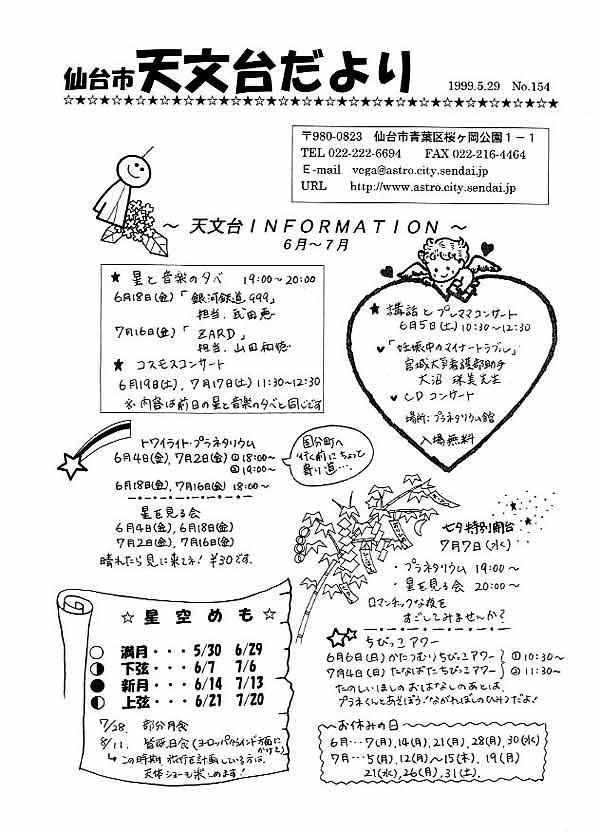 仙台市 天文台だより 1999.5.29 No.154
☆★☆★☆★☆★☆★☆★☆★☆★☆★☆★☆★☆★☆★☆★☆★☆★☆★☆★☆★☆★
〒980-0823 仙台市青葉区桜ヶ岡公園1-1
TEL 022-222-6694 FAX 022-216-4464
E-mail vega@astro.city.sendai.jp
URL http://www.astro.city.sendai.jp
~ 天文台INFORMATION ~
6月~7月
★ 星と音楽の夕べ 19:00~20:00
6月18日(金)「銀河鉄道999」
担当. 武田恵
7月16日(金)「ZARD」
担当. 山田和
★ コスモスコンサート
6月19日(土), 7月17日(土) 11:30~12:30
※内容は前日の星と音楽の夕べと同じです
★ 講話とプレママコンサート
6月5日(土) 10:30~12:30
♥「妊娠中のマイナートラブル」
宮城大学看護部助手
大沼 珠美先生
♥ CDコンサート
場所:プラネタリウム館
入場無料
トワイライト・プラネタリウム
6月4日(金), 7月2日(金) ①18:00~
②19:00~
6月18日(金), 7月16日(金) 18:00~
国分町へ
行く前にちょっと
寄り道…
星を見る会
6月4日(金), 6月18日(金)
7月2日(金), 7月16日(金)
晴れたら見に来てネ! ¥30です。
七夕特別開台
7月7日(水)
・プラネタリウム 19:00~
・星を見る会 20:00~
ロマンチックな夜を
すごしてみませんか?
☆ 星空めも ☆
○ 満月・・・5/30 6/29
下弦・・・6/7 7/6
● 新月・・・6/14 7/13
上弦・・・6/21 7/20
7/28. 部分月食
8/11. 皆既日食(ヨーロッパからインド方面に
かけて)
↳この時期旅行を計画している方は、
天体ショーも楽しめます!
ちびっこアワー
6月6日(日)かたつむりちびっこアワー ①10:30~
7月4日(日)たなばたちびっこアワー ②11:30~
たのしいほしのおはなしのあとは、
プラネくんとあそぼう!ながれぼしのひみつだよ!
~お休みの日~
6月…7(月), 14(月), 21(月), 28(月), 30(水)
7月…5(月), 12(月)~15(木), 19(月)
21(水), 26(月), 31(土).